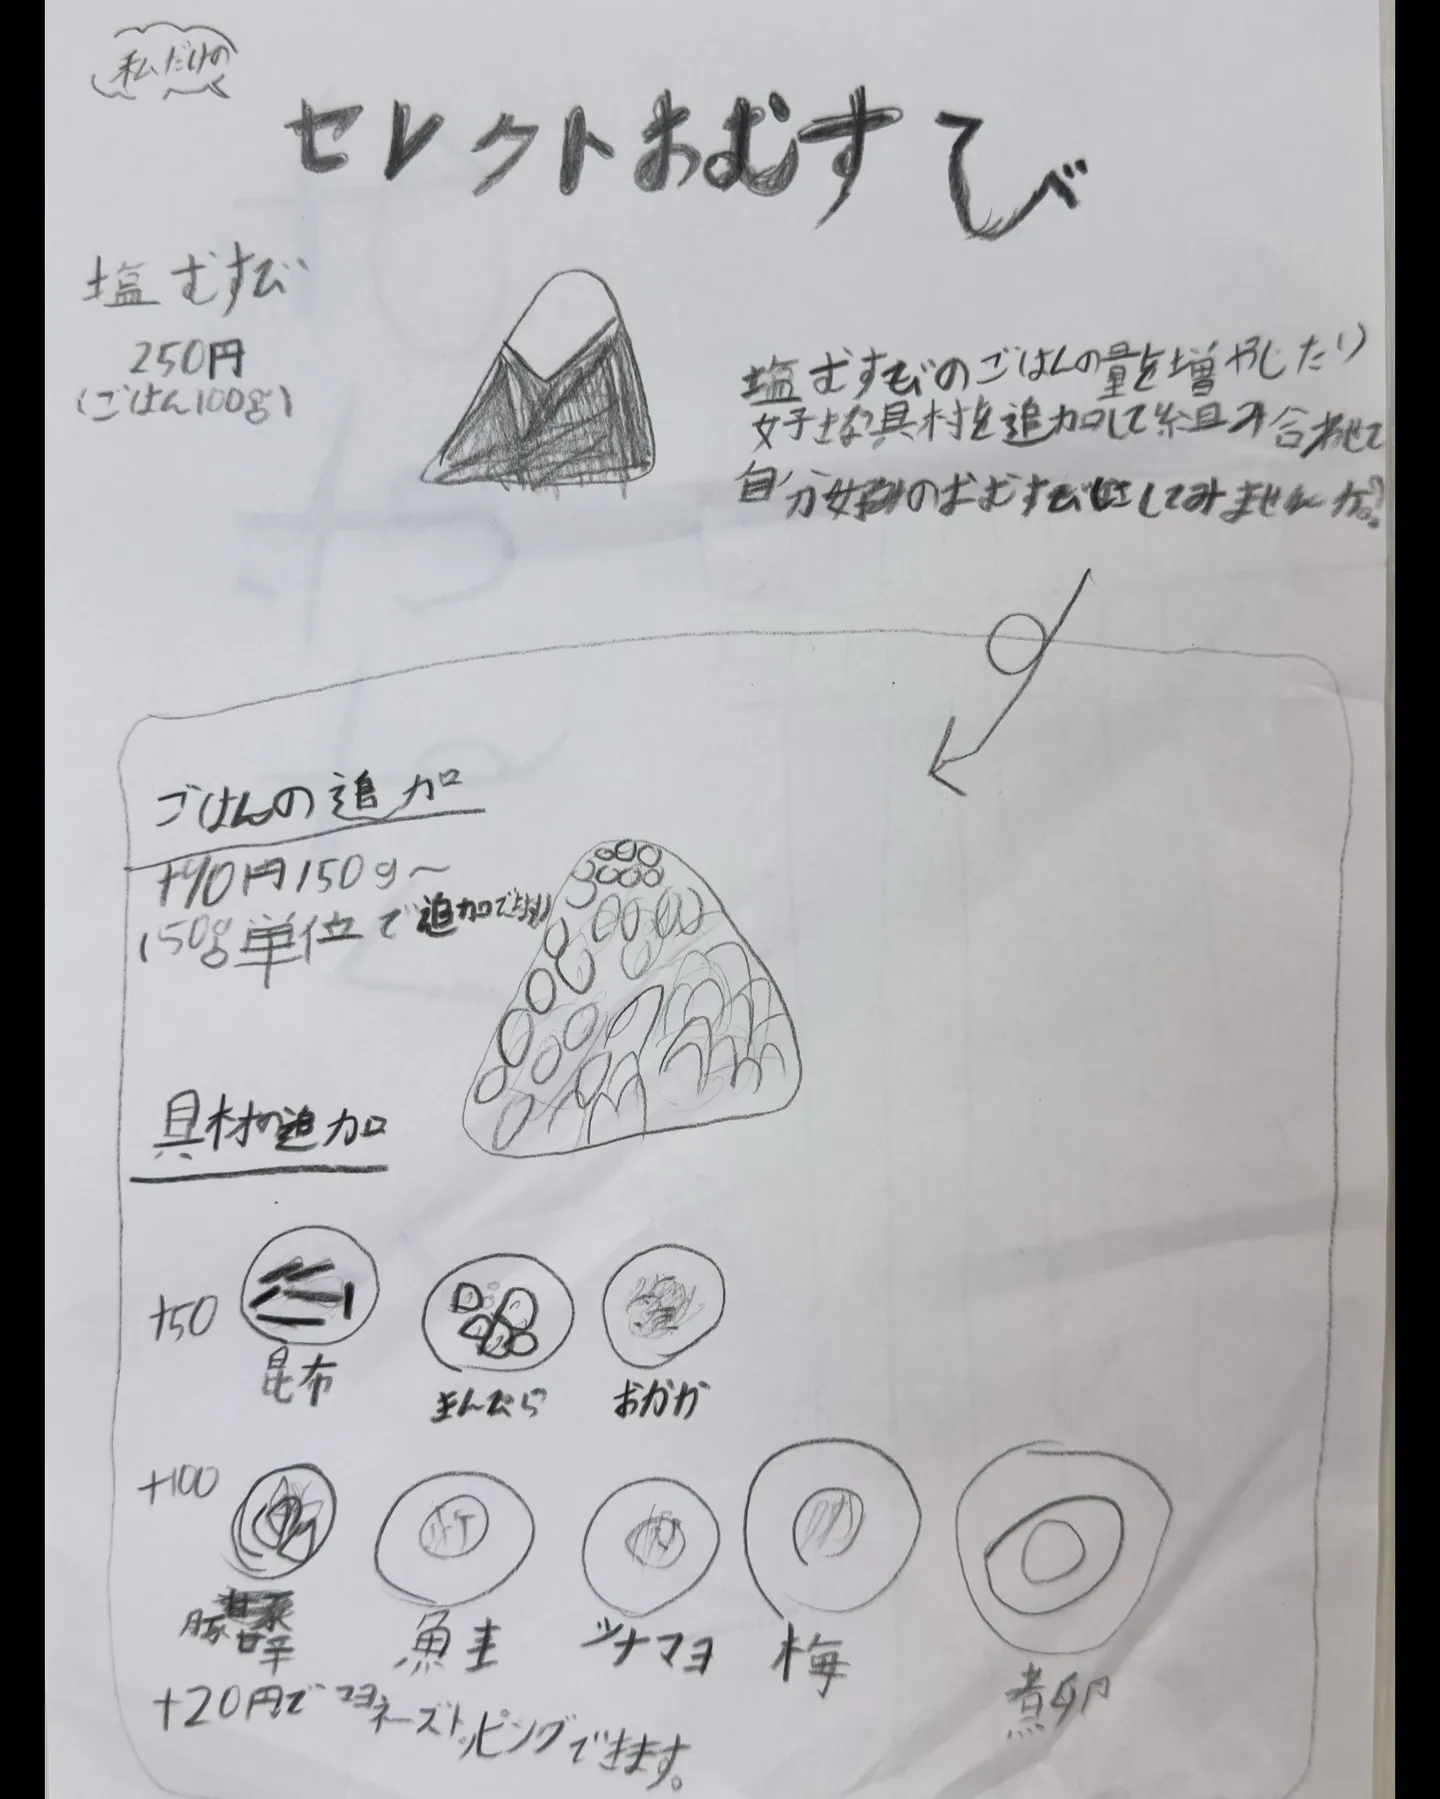 私だけの
セレクトおむすび
塩むすび
250円
(ごはん100g)
塩むすびのごはんの量を増やしたり
好きな具材を追加して組み合わせて
自分好みのおむすびにしてみませんか?
ごはんの追加
+90円150g~
150g単位で追加できます
具材の追加
+50
昆布
きんぴら
おかか
+100
豚
鮭
ツナマヨ
梅
煮卵
+20円でマヨネーズトッピングできます。